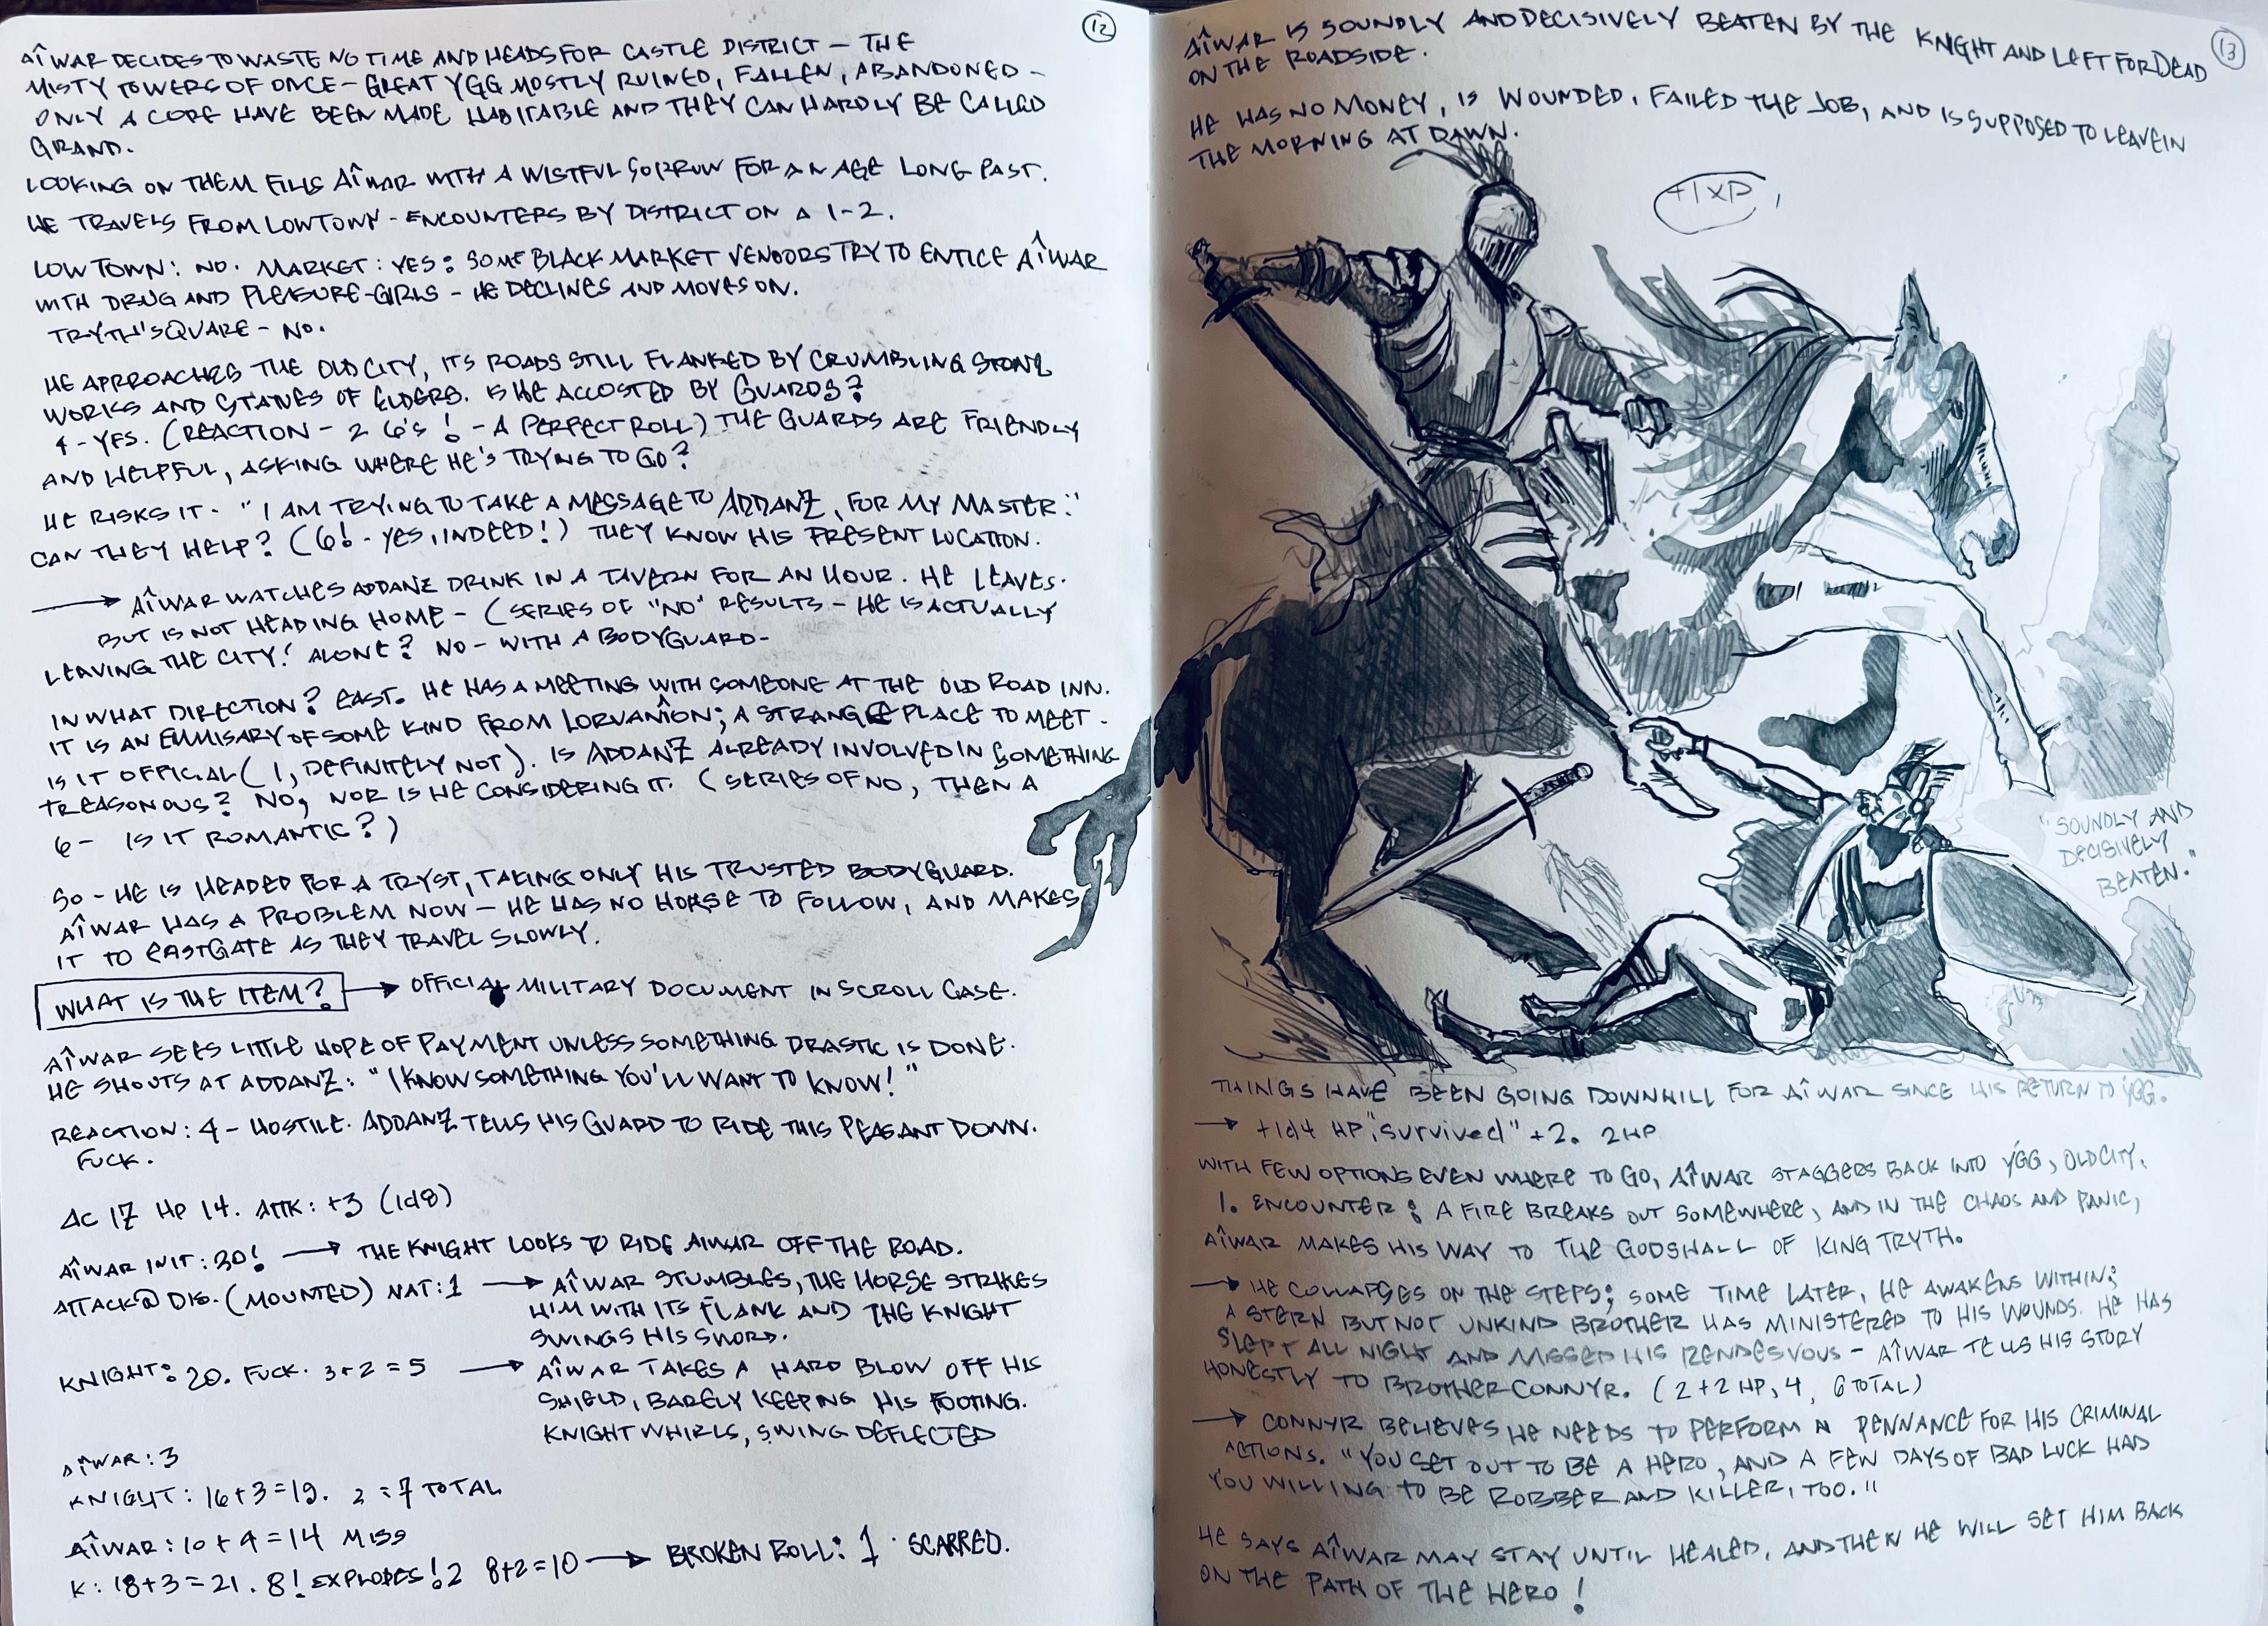 12
AÎWAR DECIDES TO WASTE NO TIME AND HEADS FOR CASTLE DISTRICT – THE
MISTY TOWERS OF ONCE – GREAT YGG MOSTLY RUINED, FALLEN, ABANDONED –
ONLY A CORE HAVE BEEN MADE HABITABLE AND THEY CAN HARDLY BE CALLED
GRAND.
LOOKING ON THEM FILLS AÎWAR WITH A WISTFUL SORROW FOR AN AGE LONG PAST.
HE TRAVELS FROM LOWTOWN – ENCOUNTERS BY DISTRICT ON A 1-2.
LOW TOWN: NO. MARKET: YES: SOME BLACK MARKET VENDORS TRY TO ENTICE AÎWAR
WITH DRUG AND PLEASURE-GIRLS – HE DECLINES AND MOVES ON.
TRYTH'S QVARE – NO.
HE APPROACHES THE OLD CITY, ITS ROADS STILL FLANKED BY CRUMBLING STONE
WORKS AND STATUES OF ELDERS. IS HE ACCOSTED BY GUARDS?
4 – YES. (REACTION – 2 6'S! – A PERFECT ROLL) THE GUARDS ARE FRIENDLY
AND HELPFUL, ASKING WHERE HE'S TRYING TO GO?
HE RISKS IT – "I AM TRYING TO TAKE A MESSAGE TO ADDANZ, FOR MY MASTER."
CAN THEY HELP? (6! – YES, INDEED!) THEY KNOW HIS PRESENT LOCATION.
→ AÎWAR WATCHES ADDANZ DRINK IN A TAVERN FOR AN HOUR. HE LEAVES.
BUT IS NOT HEADING HOME – (SERIES OF "NO" RESULTS – HE IS ACTUALLY
LEAVING THE CITY! ALONE? NO – WITH A BODYGUARD –
IN WHAT DIRECTION? EAST. HE HAS A MEETING WITH SOMEONE AT THE OLD ROAD INN.
IT IS AN EMMISARY OF SOME KIND FROM LORVANÎON; A STRANGE PLACE TO MEET.
IS IT OFFICIAL (1, DEFINITELY NOT). IS ADDANZ ALREADY INVOLVED IN SOMETHING
TREASONOUS? NO, NOR IS HE CONSIDERING IT. (SERIES OF NO, THEN A
6 – IS IT ROMANTIC?)
SO – HE IS HEADED FOR A TRYST, TAKING ONLY HIS TRUSTED BODYGUARD.
AÎWAR HAS A PROBLEM NOW – HE HAS NO HORSE TO FOLLOW, AND MAKES
IT TO EASTGATE AS THEY TRAVEL SLOWLY.
WHAT IS THE ITEM? → OFFICIAL MILITARY DOCUMENT IN SCROLL CASE.
AÎWAR SEES LITTLE HOPE OF PAYMENT UNLESS SOMETHING DRASTIC IS DONE.
HE SHOUTS AT ADDANZ: "I KNOW SOMETHING YOU'LL WANT TO KNOW!"
REACTION: 4 – HOSTILE. ADDANZ TELLS HIS GUARD TO RIDE THIS PEASANT DOWN.
FUCK.
AC 17 HP 14. ATTK: +3 (1d8)
AÎWAR INIT: 20! → THE KNIGHT LOOKS TO RIDE AÎWAR OFF THE ROAD.
ATTACK @ DIS. (MOUNTED) NAT: 1 → AÎWAR STUMBLES, THE HORSE STRIKES
HIM WITH ITS FLANK AND THE KNIGHT
SWINGS HIS SWORD.
KNIGHT: 20. FUCK. 3+2 = 5 → AÎWAR TAKES A HARD BLOW OFF HIS
SHIELD, BARELY KEEPING HIS FOOTING.
KNIGHT WHIRLS, SWING DEFLECTED
AÎWAR: 3
KNIGHT: 16+3=19. 2 = 7 TOTAL
AÎWAR: 10+4=14 MISS
K: 18+3=21. 8! EXPLODES! 2 8+2=10 → BROKEN ROLL: 1. SCARRED.
13
AÎWAR IS SOUNDLY AND DECISIVELY BEATEN BY THE KNIGHT AND LEFT FOR DEAD
ON THE ROADSIDE.
HE HAS NO MONEY, IS WOUNDED, FAILED THE JOB, AND IS SUPPOSED TO LEAVE IN
THE MORNING AT DAWN.
+1XP
"SOUNDLY AND
DECISIVELY
BEATEN."
THINGS HAVE BEEN GOING DOWNHILL FOR AÎWAR SINCE HIS RETURN TO YGG.
→ +1d4 HP, "survived" +2. 2HP
WITH FEW OPTIONS EVEN WHERE TO GO, AÎWAR STAGGERS BACK INTO YGG, OLD CITY.
1. ENCOUNTER: A FIRE BREAKS OUT SOMEWHERE, AND IN THE CHAOS AND PANIC,
AÎWAR MAKES HIS WAY TO THE GODSHALL OF KING TRYTH.
→ HE COLLAPSES ON THE STEPS; SOME TIME LATER, HE AWAKENS WITHIN;
A STERN BUT NOT UNKIND BROTHER HAS MINISTERED TO HIS WOUNDS. HE HAS
SLEPT ALL NIGHT AND MISSED HIS RENDESVOUS – AÎWAR TELLS HIS STORY
HONESTLY TO BROTHER CONNYR. (2+2 HP, 4, 6 TOTAL)
→ CONNYR BELIEVES HE NEEDS TO PERFORM A PENNANCE FOR HIS CRIMINAL
ACTIONS. "YOU SET OUT TO BE A HERO, AND A FEW DAYS OF BAD LUCK HAD
YOU WILLING TO BE ROBBER AND KILLER, TOO."
HE SAYS AÎWAR MAY STAY UNTIL HEALED, AND THEN HE WILL SET HIM BACK
ON THE PATH OF THE HERO!